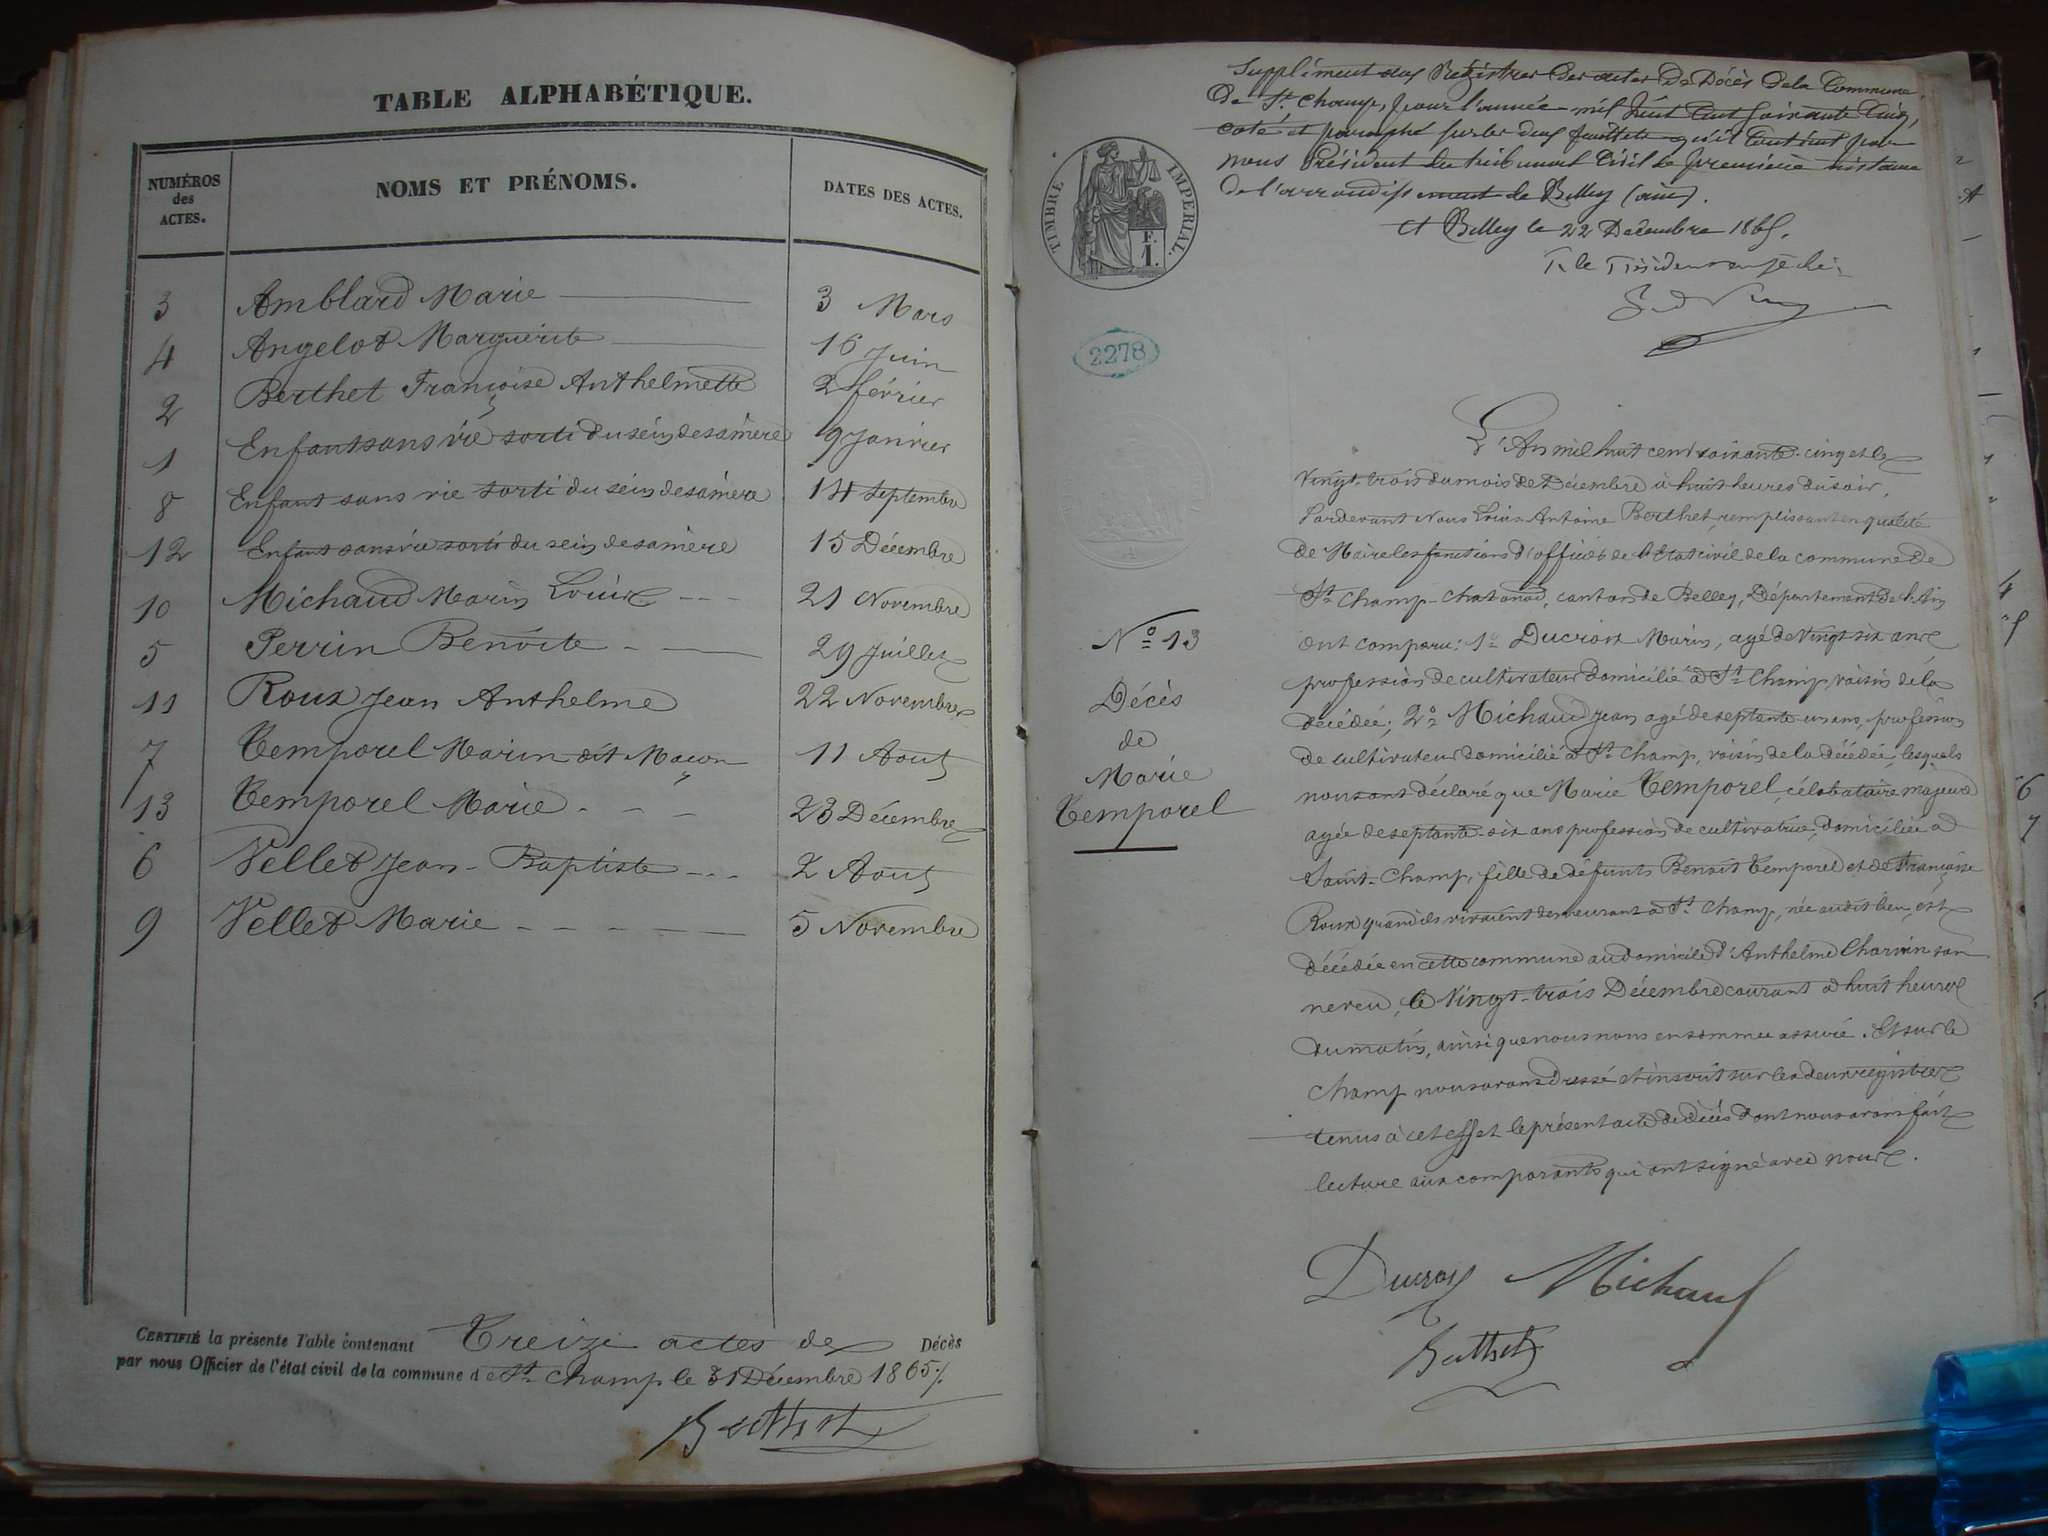 TABLE ALPHABÉTIQUE.
NUMÉROS des ACTES.
NOMS ET PRÉNOMS.
DATES DES ACTES.
3 Amblard Marie 3 Mars
4 Angelot Marguerite 16 Juin
2 Berthet Françoise Anthelmette 2 février
1 Enfant sans vie sorti du sein de sa mère 9 Janvier
8 Enfant sans vie sorti du sein de sa mère 14 Septembre
12 Enfant sans vie sorti du sein de sa mère 15 Décembre
10 Michaud Marin Louis 21 Novembre
5 Perrin Benoite 29 Juillet
11 Roux Jean Anthelme 22 Novembre
7 Temporel Marin dit Maçon 11 Aout
13 Temporel Marie 23 Décembre
6 Vellet Jean-Baptiste 2 Aout
9 Vellet Marie 5 Novembre
CERTIFIÉ la présente Table contenant Treize actes de Décès
par nous Officier de l'état civil de la commune de St Champ le 31 Décembre 1865
Berthet
Supplément aux Régistres des actes de Décès de la Commune
de St Champ, pour l'année mil huit cent soixante cinq,
coté et paraphé sur les deux feuillets qu'il contient par
nous Président du tribunal Civil de première instance
de l'arrondissement de Belley (ain).
A Belley le 22 Decembre 1865.
TIMBRE IMPERIAL.
F. 1.
2278
L'An mil huit cent soixante-cinq et le
Vingt-trois du mois de Décembre à huit heures du soir,
Pardevant Nous Louis Antoine Berthet, remplissant en qualité
de Maire les fonctions d'officier de l'état civil de la commune de
St Champ-Chatonod, canton de Belley, Département de l'Ain
N° 13
Décès
de
Marie
Temporel
ont comparu: 1° Ducroix Marin, agé de Vingt six ans
profession de cultivateur domicilié à St Champ, voisin de la
décédée; 2° Michaud Jean agé de septante un ans, profession
de cultivateur domicilié à St Champ, voisin de la décédée, lesquels
nous ont déclaré que Marie Temporel, célibataire majeure
agée de septante-six ans profession de cultivatrice, domiciliée à
Saint-Champ, fille de défunts Benoit Temporel et de Françoise
Roux quand ils vivaient demeurant à St Champ, née audit lieu, est
décédée en cette commune au domicile d'Anthelme Charvin son
neveu, le Vingt-trois Décembre courant à huit heures
du matin, ainsi que nous nous en sommes assuré. Et sur le
champ nous avons dressé et inscrit sur les deux registres
tenus à cet effet le présent acte de décès dont nous avons fait
lecture aux comparants qui ont signé avec nous.
Ducroix Michaud
Berthet